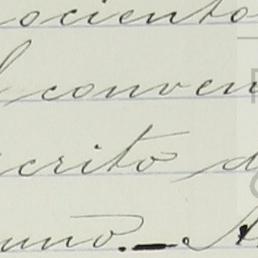 ociento
l conven
crito d
uno. — A